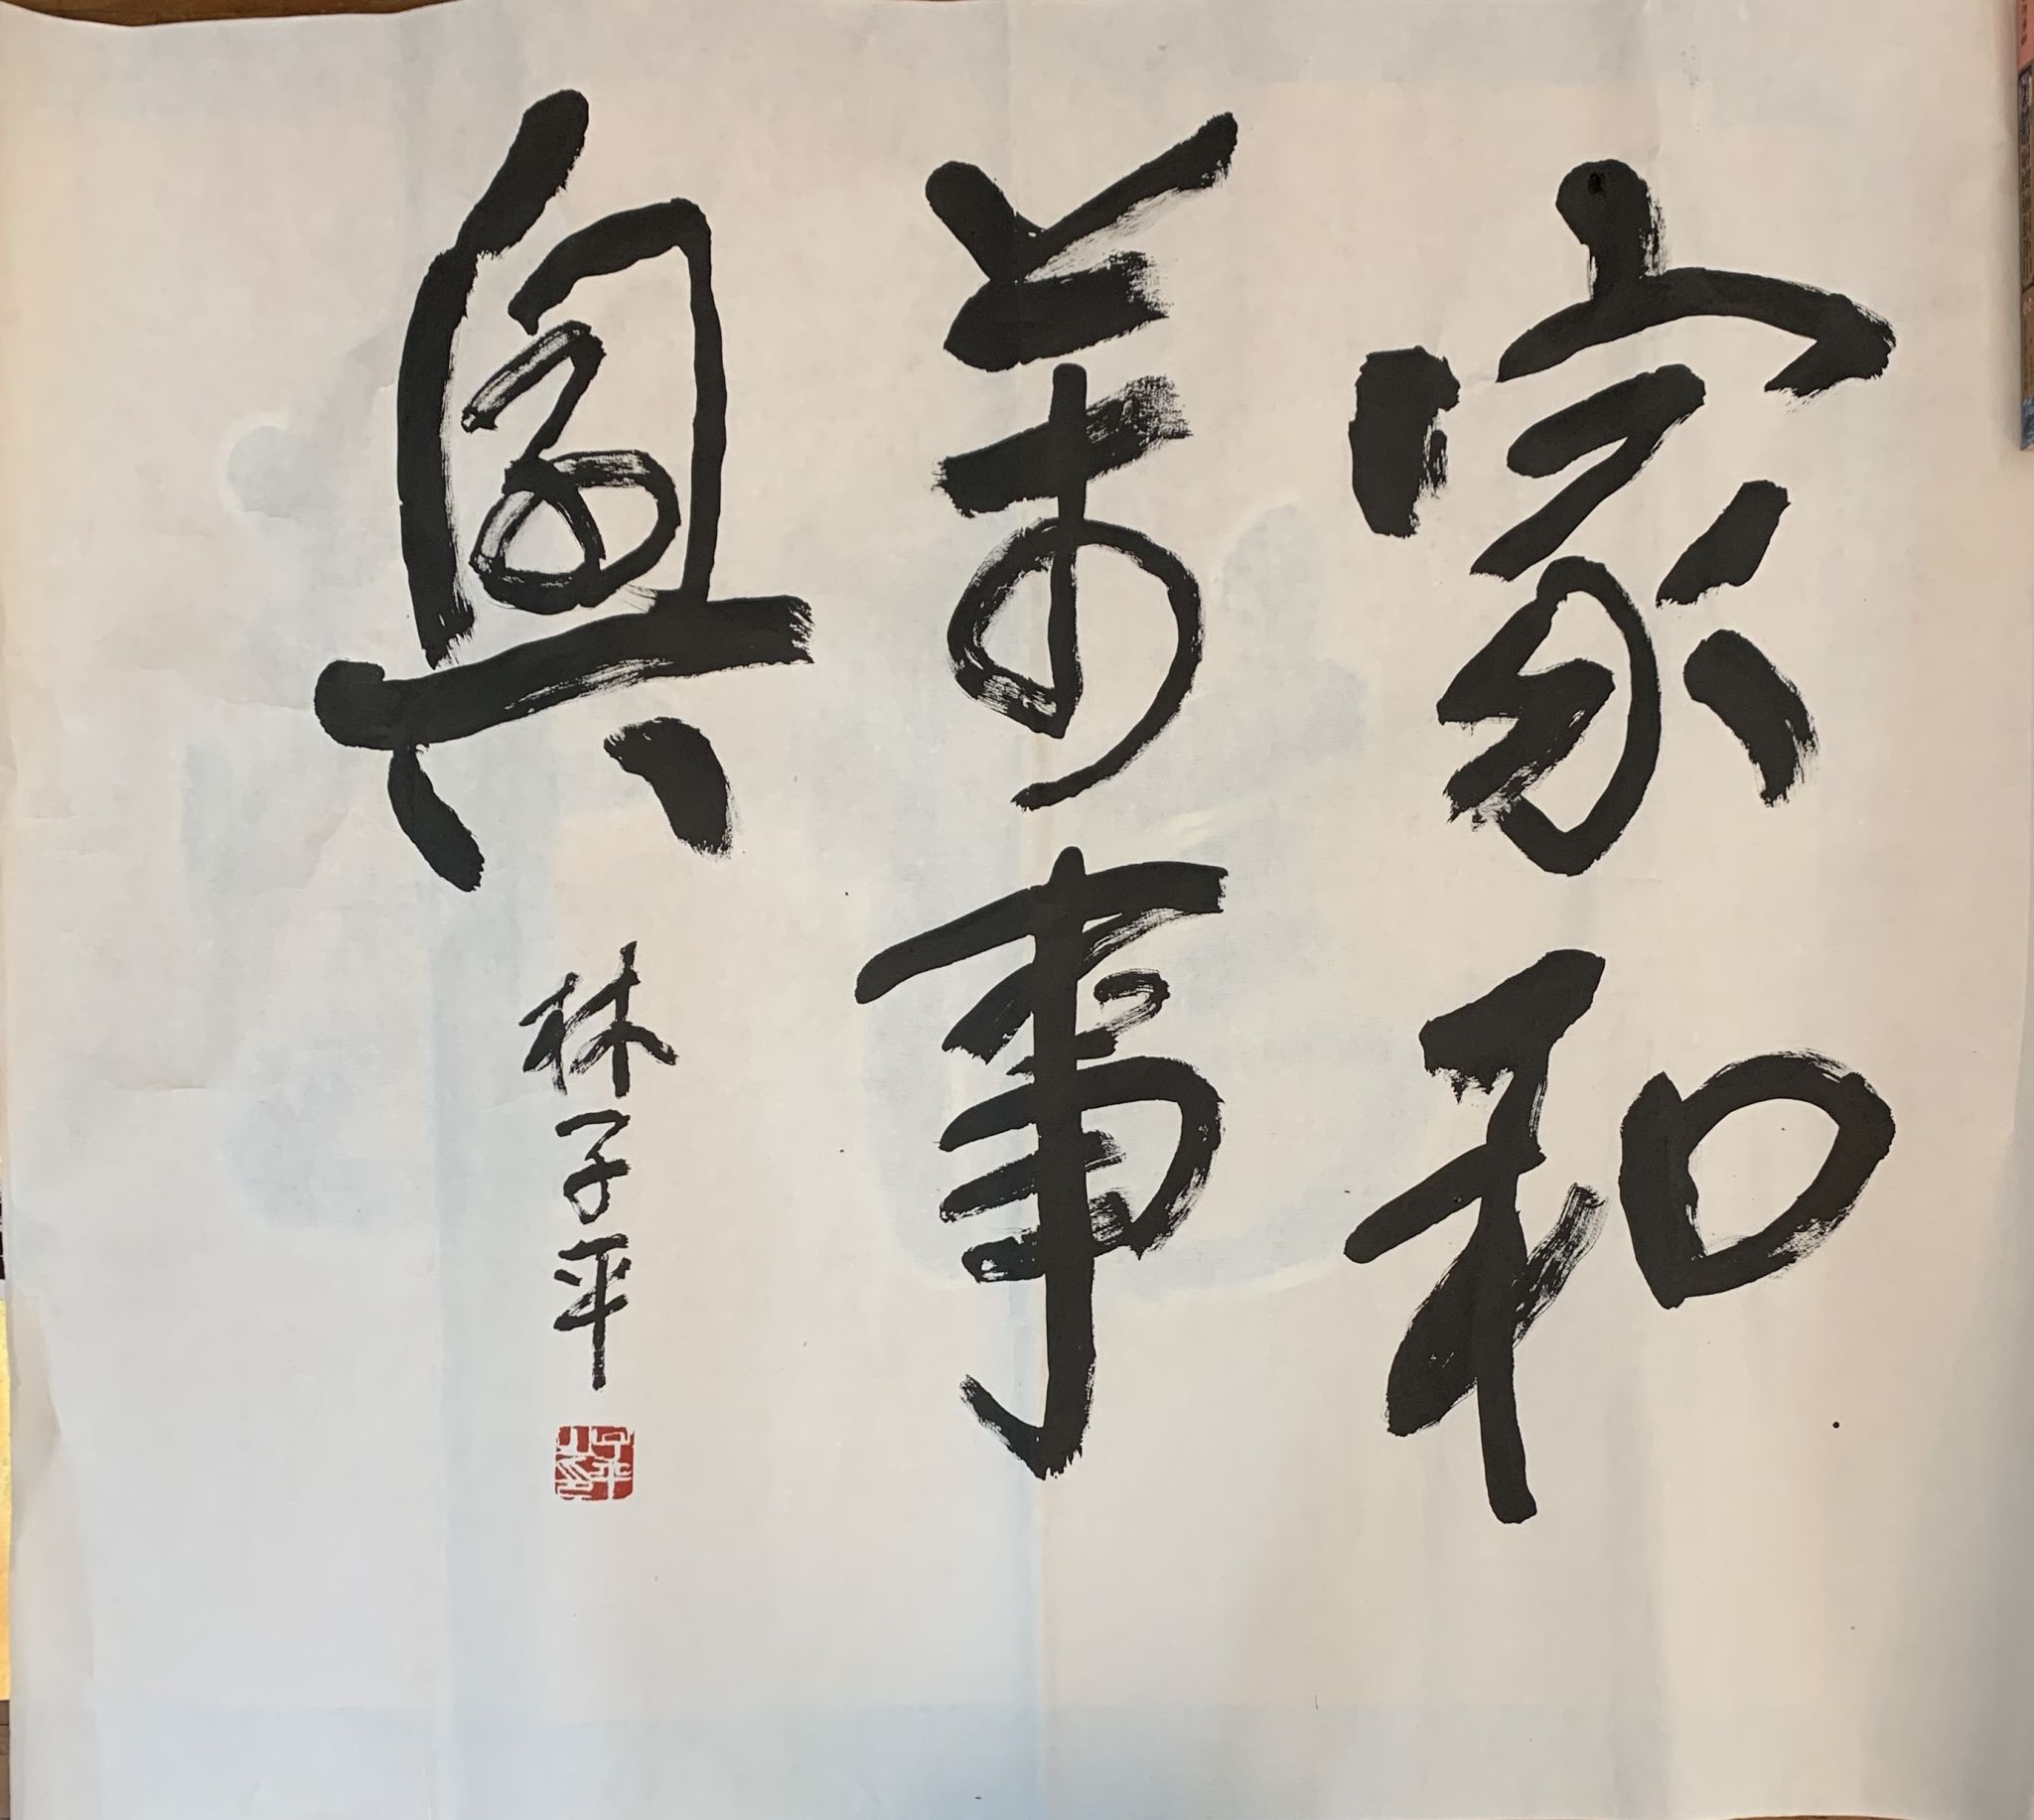 家和
萬事
興
林子平